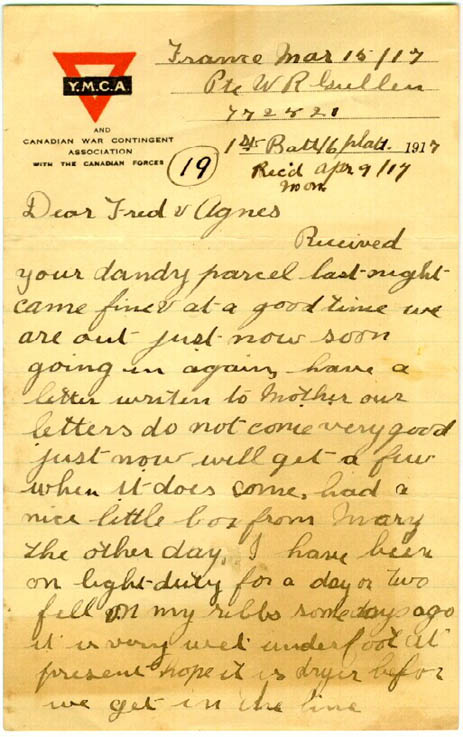 France Mar 15/17
Pte W R Gullen
772821
1st Batt 16 platt. 1917
Rec'd Apr 9/17
Mon
Y.M.C.A.
AND
CANADIAN WAR CONTINGENT
ASSOCIATION
WITH THE CANADIAN FORCES
19
Dear Fred & Agnes
Received
your dandy parcel last night
came fine & at a good time we
are out just now soon
going in again, have a
letter writen to Mother our
letters do not come very good
just now will get a few
when it does come, had a
nice little box from Mary
the other day, I have been
on light duty for a day or two
fell on my ribbs some days ago
it is very wet underfoot at
present hope it is dryer befor
we get in the line